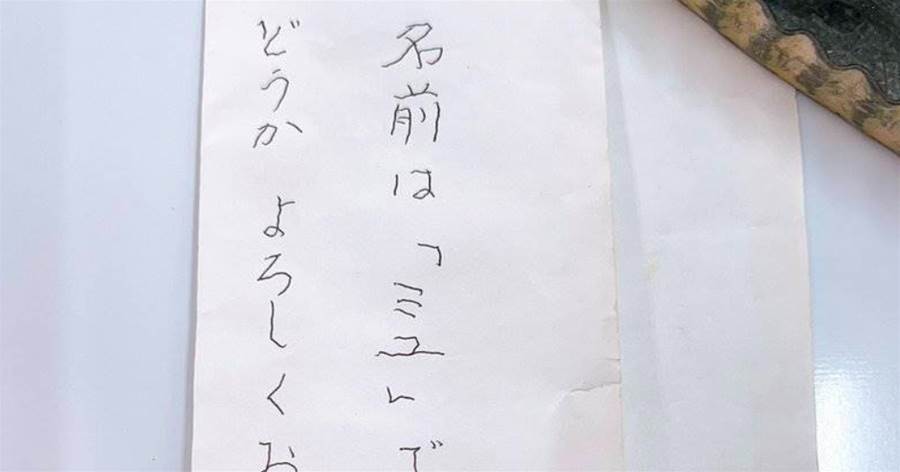 名前は「ミュ」で
どうか よろしくお